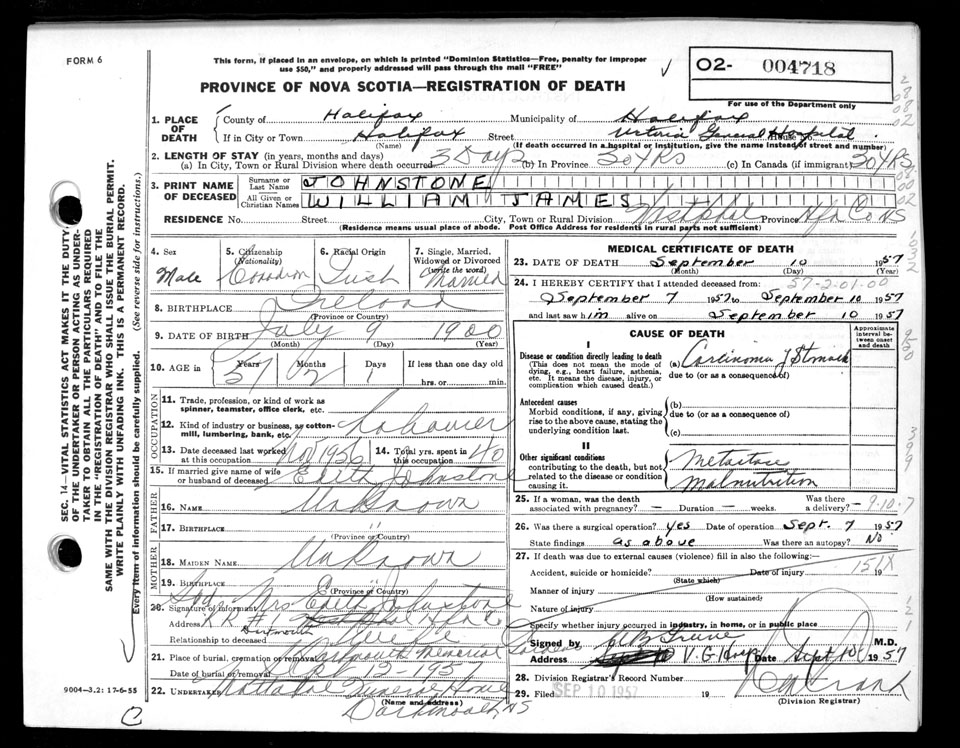 FORM 6
This form, if placed in an envelope, on which is printed "Dominion Statistics—Free, penalty for improper
use $50," and properly addressed will pass through the mail "FREE"
✓ O2- 004718
PROVINCE OF NOVA SCOTIA—REGISTRATION OF DEATH
For use of the Department only
1. PLACE OF DEATH
County of Halifax Municipality of Halifax
If in City or Town Halifax (Name) Street Victoria General Hospital House No.
(If death occurred in a hospital or institution, give the name instead of street and number)
2. LENGTH OF STAY (in years, months and days)
(a) In City, Town or Rural Division where death occurred 3 Days (b) In Province 30 YRS (c) In Canada (if immigrant) 30 YRS
3. PRINT NAME OF DECEASED
Surname or Last Name JOHNSTONE
All Given or Christian Names WILLIAM JAMES
RESIDENCE No. Street City, Town or Rural Division Westphal Province Hfx Co NS
(Residence means usual place of abode. Post Office Address for residents in rural parts not sufficient)
4. Sex Male
5. Citizenship (Nationality) Canadian
6. Racial Origin Irish
7. Single, Married, Widowed or Divorced (write the word) Married
8. BIRTHPLACE Ireland
(Province or Country)
9. DATE OF BIRTH July 9 1900
(Month) (Day) (Year)
10. AGE in Years 57 Months 2 Days 1 If less than one day old
hrs. or min.
OCCUPATION
11. Trade, profession, or kind of work as
spinner, teamster, office clerk, etc.
12. Kind of industry or business, as cotton-
mill, lumbering, bank, etc. Labourer
13. Date deceased last worked at this occupation Nov 1956 14. Total yrs. spent in this occupation 40
15. If married give name of wife or husband of deceased Edith Johnstone
FATHER
16. NAME Unknown
17. BIRTHPLACE "
(Province or Country)
MOTHER
18. MAIDEN NAME Unknown
19. BIRTHPLACE "
(Province or Country)
20. Signature of informant Sgd Mrs Edith Johnstone
Address RR #1 Westphal Hfx Co
Dartmouth
Relationship to deceased
21. Place of burial, cremation or removal Dartmouth Memorial
Date of burial or removal
22. Undertaker Funeral Home
(Name and address)
Dartmouth, NS
MEDICAL CERTIFICATE OF DEATH
23. DATE OF DEATH September 10 1957
(Month) (Day) (Year)
24. I HEREBY CERTIFY that I attended deceased from: 57-2.01.00
September 7 1957 to September 10 1957
and last saw him alive on September 10 1957
CAUSE OF DEATH
Approximate interval between onset and death
I
Disease or condition directly leading to death (a) Carcinoma of Stomach
(This does not mean the mode of dying, e.g., heart failure, asthenia, etc. It means the disease, injury, or complication which caused death.)
due to (or as a consequence of)
Antecedent causes
Morbid conditions, if any, giving rise to the above cause, stating the underlying condition last.
(b)
due to (or as a consequence of)
(c)
II
Other significant conditions
contributing to the death, but not related to the disease or condition causing it.
Malnutrition
25. If a woman, was the death associated with pregnancy? — Duration — weeks. Was there a delivery? 9-10-7
26. Was there a surgical operation? yes Date of operation Sept. 7 1957
State findings as above Was there an autopsy? No
27. If death was due to external causes (violence) fill in also the following:—
Accident, suicide or homicide? Date of injury 151X 19
(State which)
Manner of injury
(How sustained)
Nature of injury
Specify whether injury occurred in industry, in home, or in public place
Signed by M.D.
Address V. G. Hosp Date Sept 10 1957
28. Division Registrar's Record Number
29. Filed SEP 10 1957 19
(Division Registrar)
SEC. 14—VITAL STATISTICS ACT MAKES IT THE DUTY
OF THE UNDERTAKER OR PERSON ACTING AS UNDER-
TAKER TO OBTAIN ALL THE PARTICULARS REQUIRED
IN THE "REGISTRATION OF DEATH" AND TO FILE THE
SAME WITH THE DIVISION REGISTRAR WHO SHALL ISSUE THE BURIAL PERMIT.
WRITE PLAINLY WITH UNFADING INK. THIS IS A PERMANENT RECORD.
Every item of information should be carefully supplied. (See reverse side for instructions.)
9004-3.2: 17-6-55
C